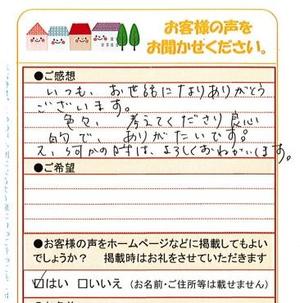 お客様の声を
お聞かせください。
●ご感想
いつも、お世話になりありがとう
ございます。
色々、考えてくださり良心
的で、ありがたいです。
又、何かの時は、よろしくおねがいします。
●ご希望
●お客様の声をホームページなどに掲載してもよい
でしょうか？　掲載時はお礼をさせていただきます
☑はい □いいえ (お名前・ご住所等は載せません)